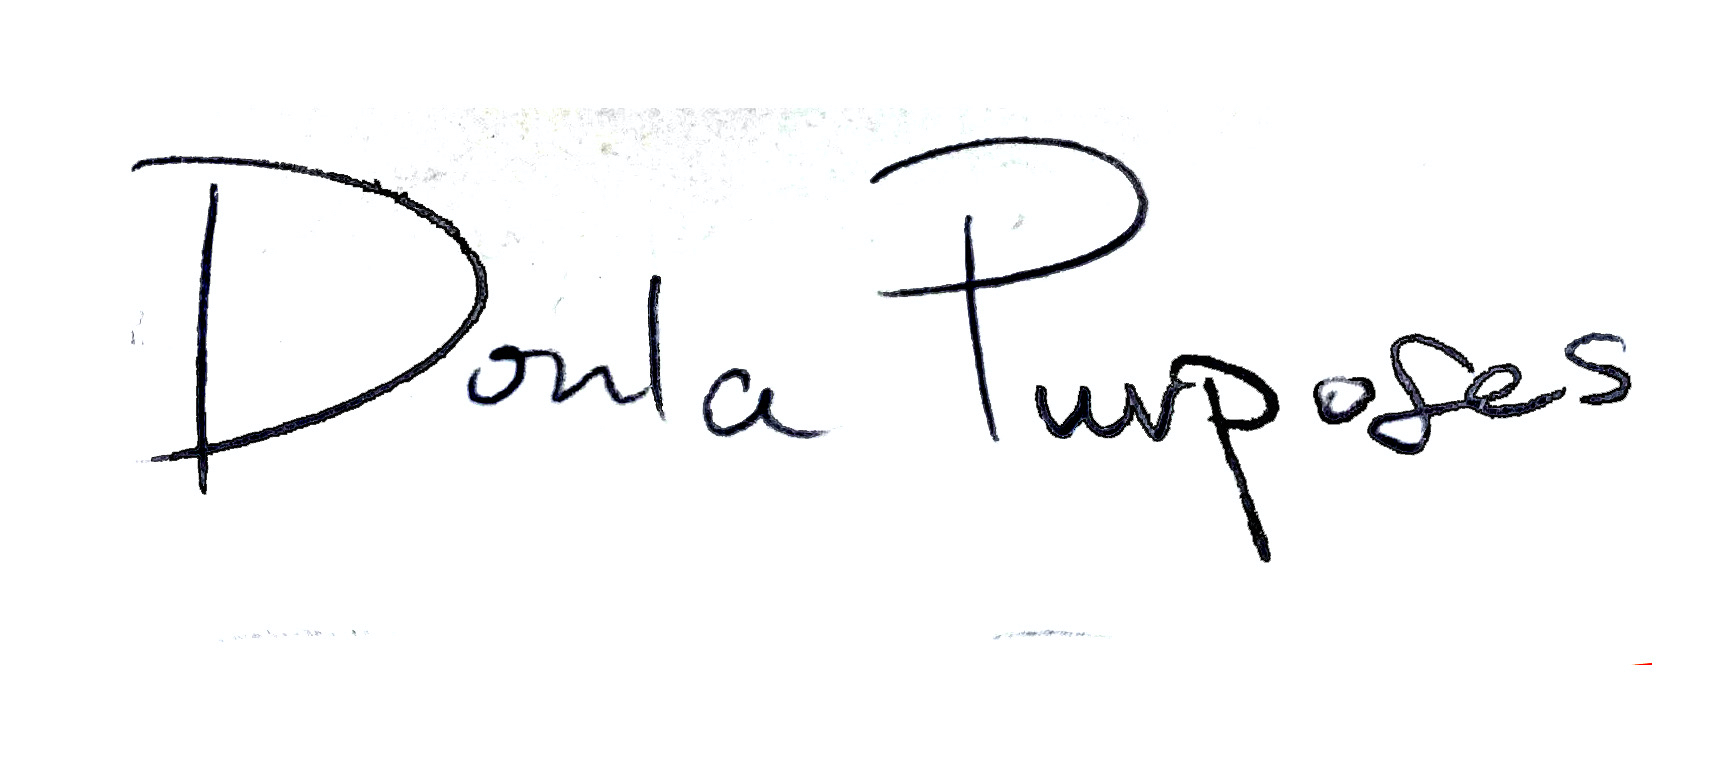 Doula Purposes